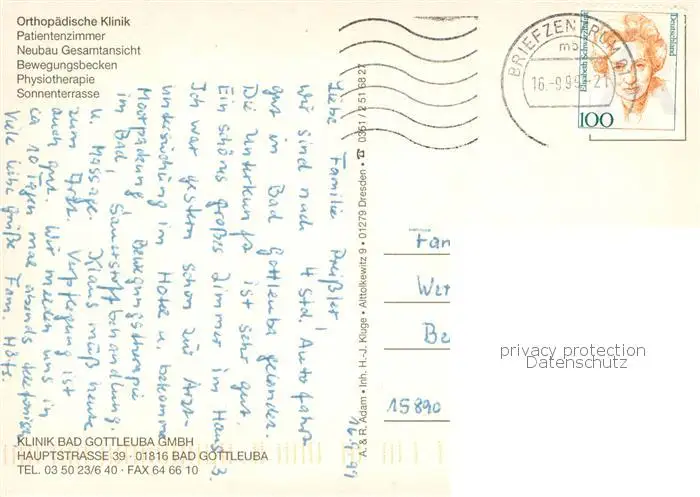 Orthopädische Klinik
Patientenzimmer
Neubau Gesamtansicht
Bewegungsbecken
Physiotherapie
Sonnenterrasse
BRIEFZENTRUM
mb
16.-9.99-21
Elisabeth Schwarzhaupt
Deutschland
100
16.9.99
Liebe Familie Preißler!
Wir sind nach 4 Std. Autofahrt
gut in Bad Gottleuba gelandet.
Die Unterkunft ist sehr gut.
Ein schönes großes Zimmer im Haus 3.
Ich war gestern schon zur Arzt-
untersuchung im Hotel u. bekomme
Moorpackung, Bewegungstherapie
im Bad, Sauerstoffbehandlung
u. Massage. Klaus muß heute
zum Arzt. Verpflegung ist
auch gut. Wir melden uns in
ca 10 Tagen mal abends telefonisch
Viele liebe Grüße Fam.
A. & R. Adam • Inh. H.-J. Kluge • Alttolkewitz 9 • 01279 Dresden • ☎ 0351 / 2 51 68 27
Fam
Wer
Be
15890
privacy protection
Datenschutz
KLINIK BAD GOTTLEUBA GMBH
HAUPTSTRASSE 39 · 01816 BAD GOTTLEUBA
TEL. 03 50 23/6 40 · FAX 64 66 10